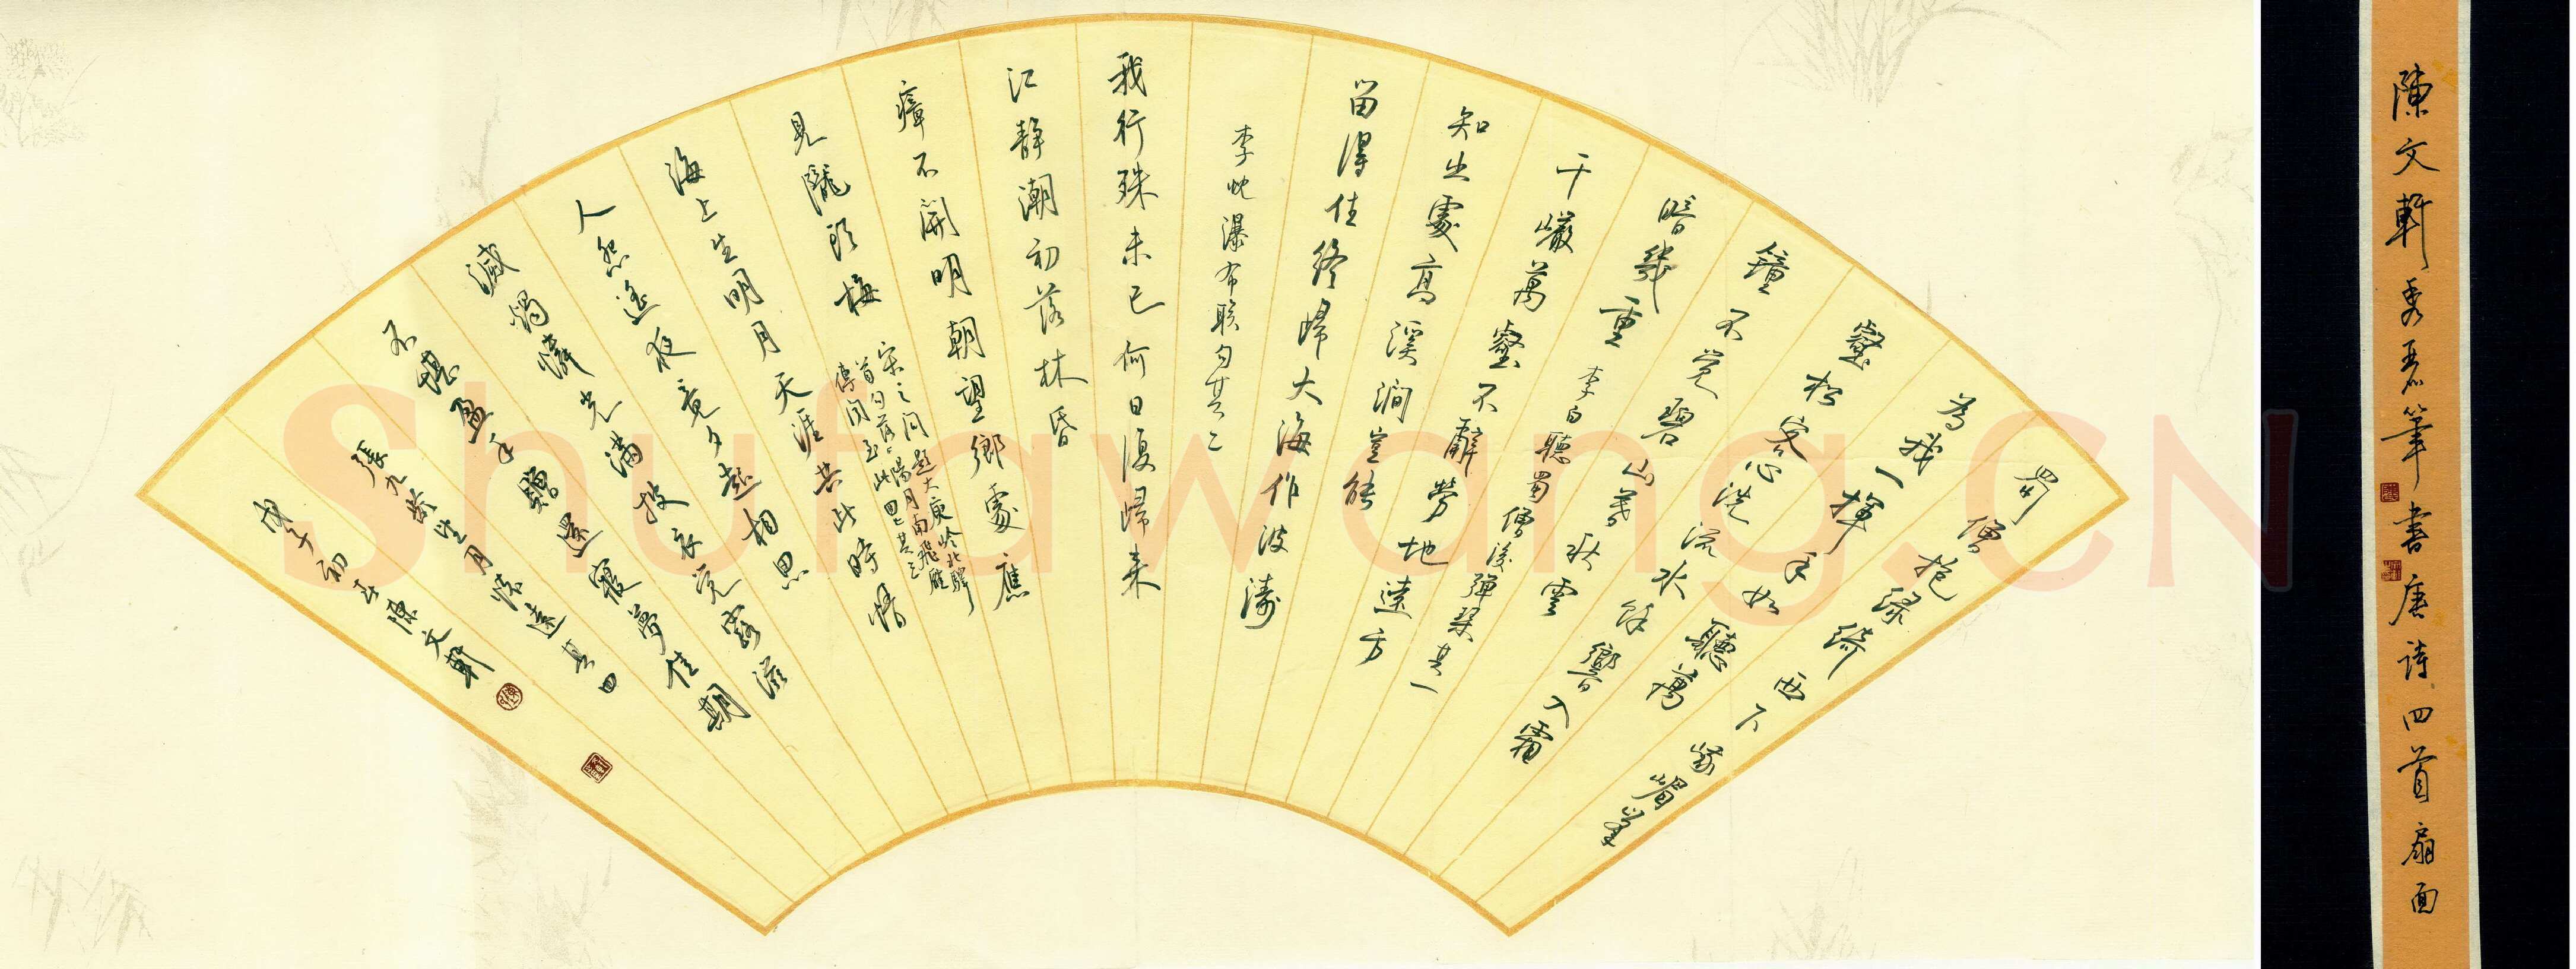 蜀僧抱綠綺西下峨嵋峯
為我一揮手如聽萬
壑松客心洗流水餘響入霜
鐘不覺碧山暮秋雲
暗幾重 李白聽蜀僧濬彈琴其一
千巖萬壑不辭勞地遠方
知出處高溪澗豈能
留得住終歸大海作波濤
李忱瀑布联句其二
我行殊未已何日復歸来
江靜潮初落林昏
瘴不開明朝望鄉處應
見隴頭梅
宋之问題大庾岭北驛
首句陽月南飛雁
傳闻至此回其三
海上生明月天涯共此時情
人怨遙夜竟夕起相思
滅燭憐光滿披衣覺露滋
不堪盈手贈還寢夢佳期
張九齡望月懷遠其四
初春陳文軒
陳文軒秀丽筆書唐诗四首扇面
Shufawang.CN